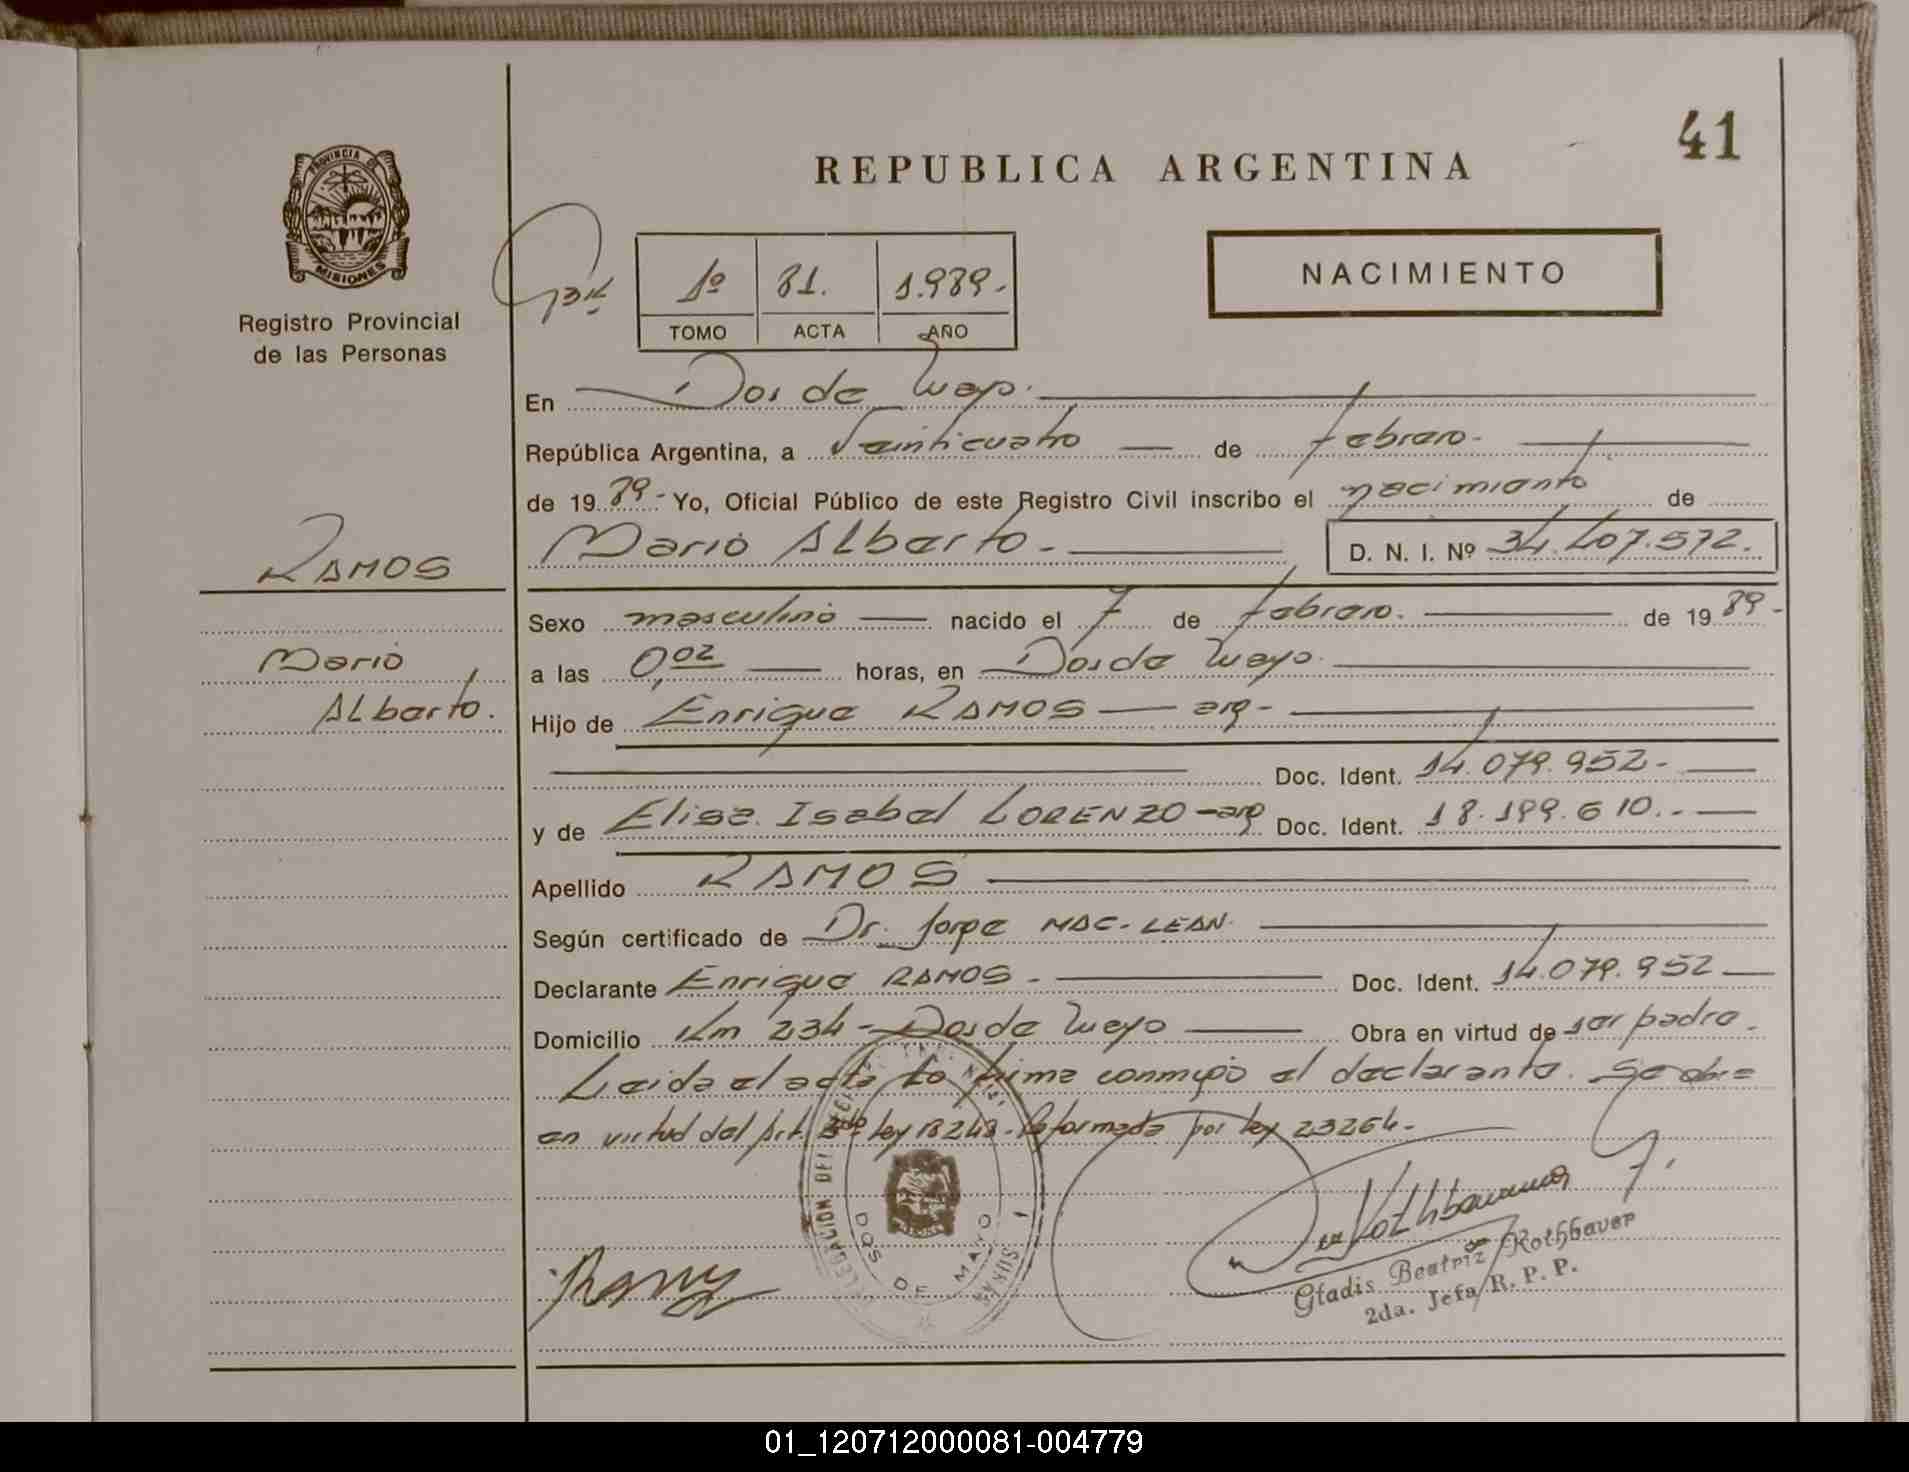 41
REPUBLICA ARGENTINA
PROVINCIA DE
MISIONES
Registro Provincial
de las Personas
1º 81. 1.989.-
TOMO ACTA AÑO
NACIMIENTO
En Dos de Mayo.
República Argentina, a Veinticuatro de febrero.-
de 19 89.- Yo, Oficial Público de este Registro Civil inscribo el nacimiento de
RAMOS
Mario Alberto.- D. N. I. Nº 34.407.572.
Sexo masculino nacido el 7 de febrero. de 19 89-
Mario
a las 0,02 horas, en Dos de Mayo.
Alberto.
Hijo de Enrique RAMOS — arg-
Doc. Ident. 14.079.952.-
y de Elisa Isabel LORENZO - arg Doc. Ident. 18.199.610.-
Apellido RAMOS
Según certificado de Dr. Jorge MAC-LEAN.
Declarante Enrique RAMOS.- Doc. Ident. 14.079.952
Domicilio Km 234 - Dos de Mayo Obra en virtud de ser padre.
Leida el acta la firma conmigo el declarante. Se obra
en virtud del Art. 5to ley 18248. Reformada por ley 23264.-
DOS DE MAYO
Rothbauer
Gladis Beatriz de Rothbauer
2da. Jefa R. P. P.
01_120712000081-004779